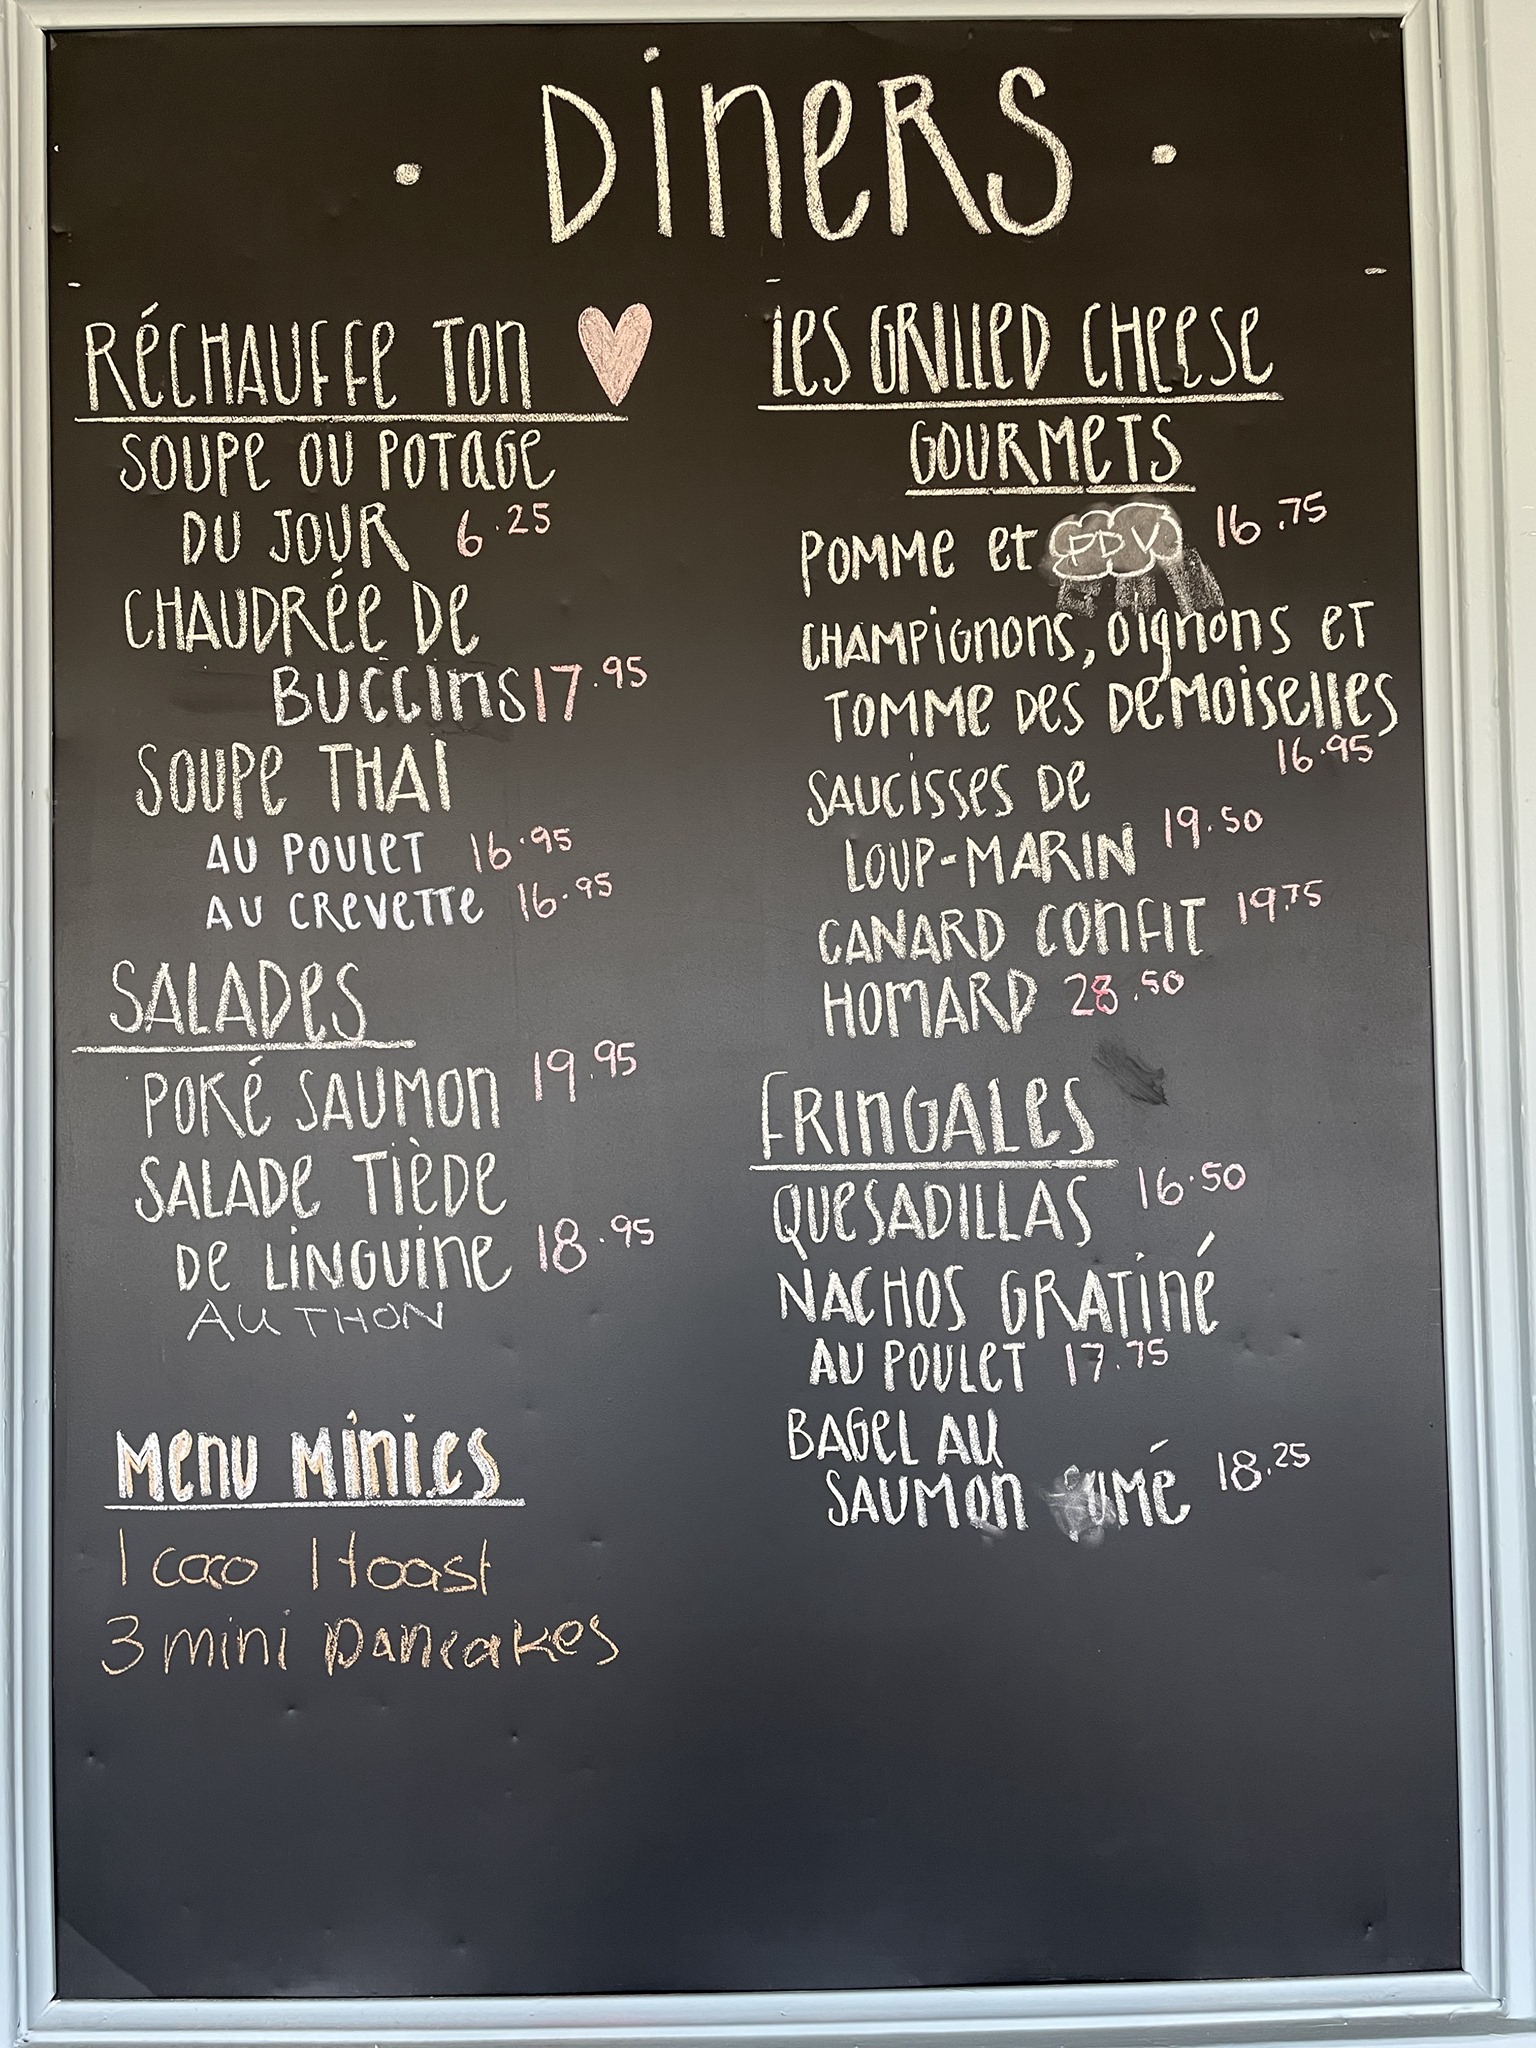 · DINERS ·
RÉCHAUFFE TON
SOUPE OU POTAGE
DU JOUR 6.25
CHAUDRÉE DE
BUCCINS 17.95
SOUPE THAI
AU POULET 16.95
AU CREVETTE 16.95
SALADES
POKÉ SAUMON 19.95
SALADE TIÈDE
DE LINGUINE 18.95
AU THON
MENU MINIES
1 coco 1 toast
3 mini pancakes
LES GRILLED CHEESE
GOURMETS
POMME et PDV 16.75
CHAMPIGNONS, OIGNONS ET
TOMME DES DEMOISELLES
16.95
SAUCISSES DE
LOUP-MARIN 19.50
CANARD CONFIT 19.75
HOMARD 28.50
FRINGALES
QUESADILLAS 16.50
NACHOS GRATINÉ
AU POULET 17.75
BAGEL AU
SAUMON FUMÉ 18.25